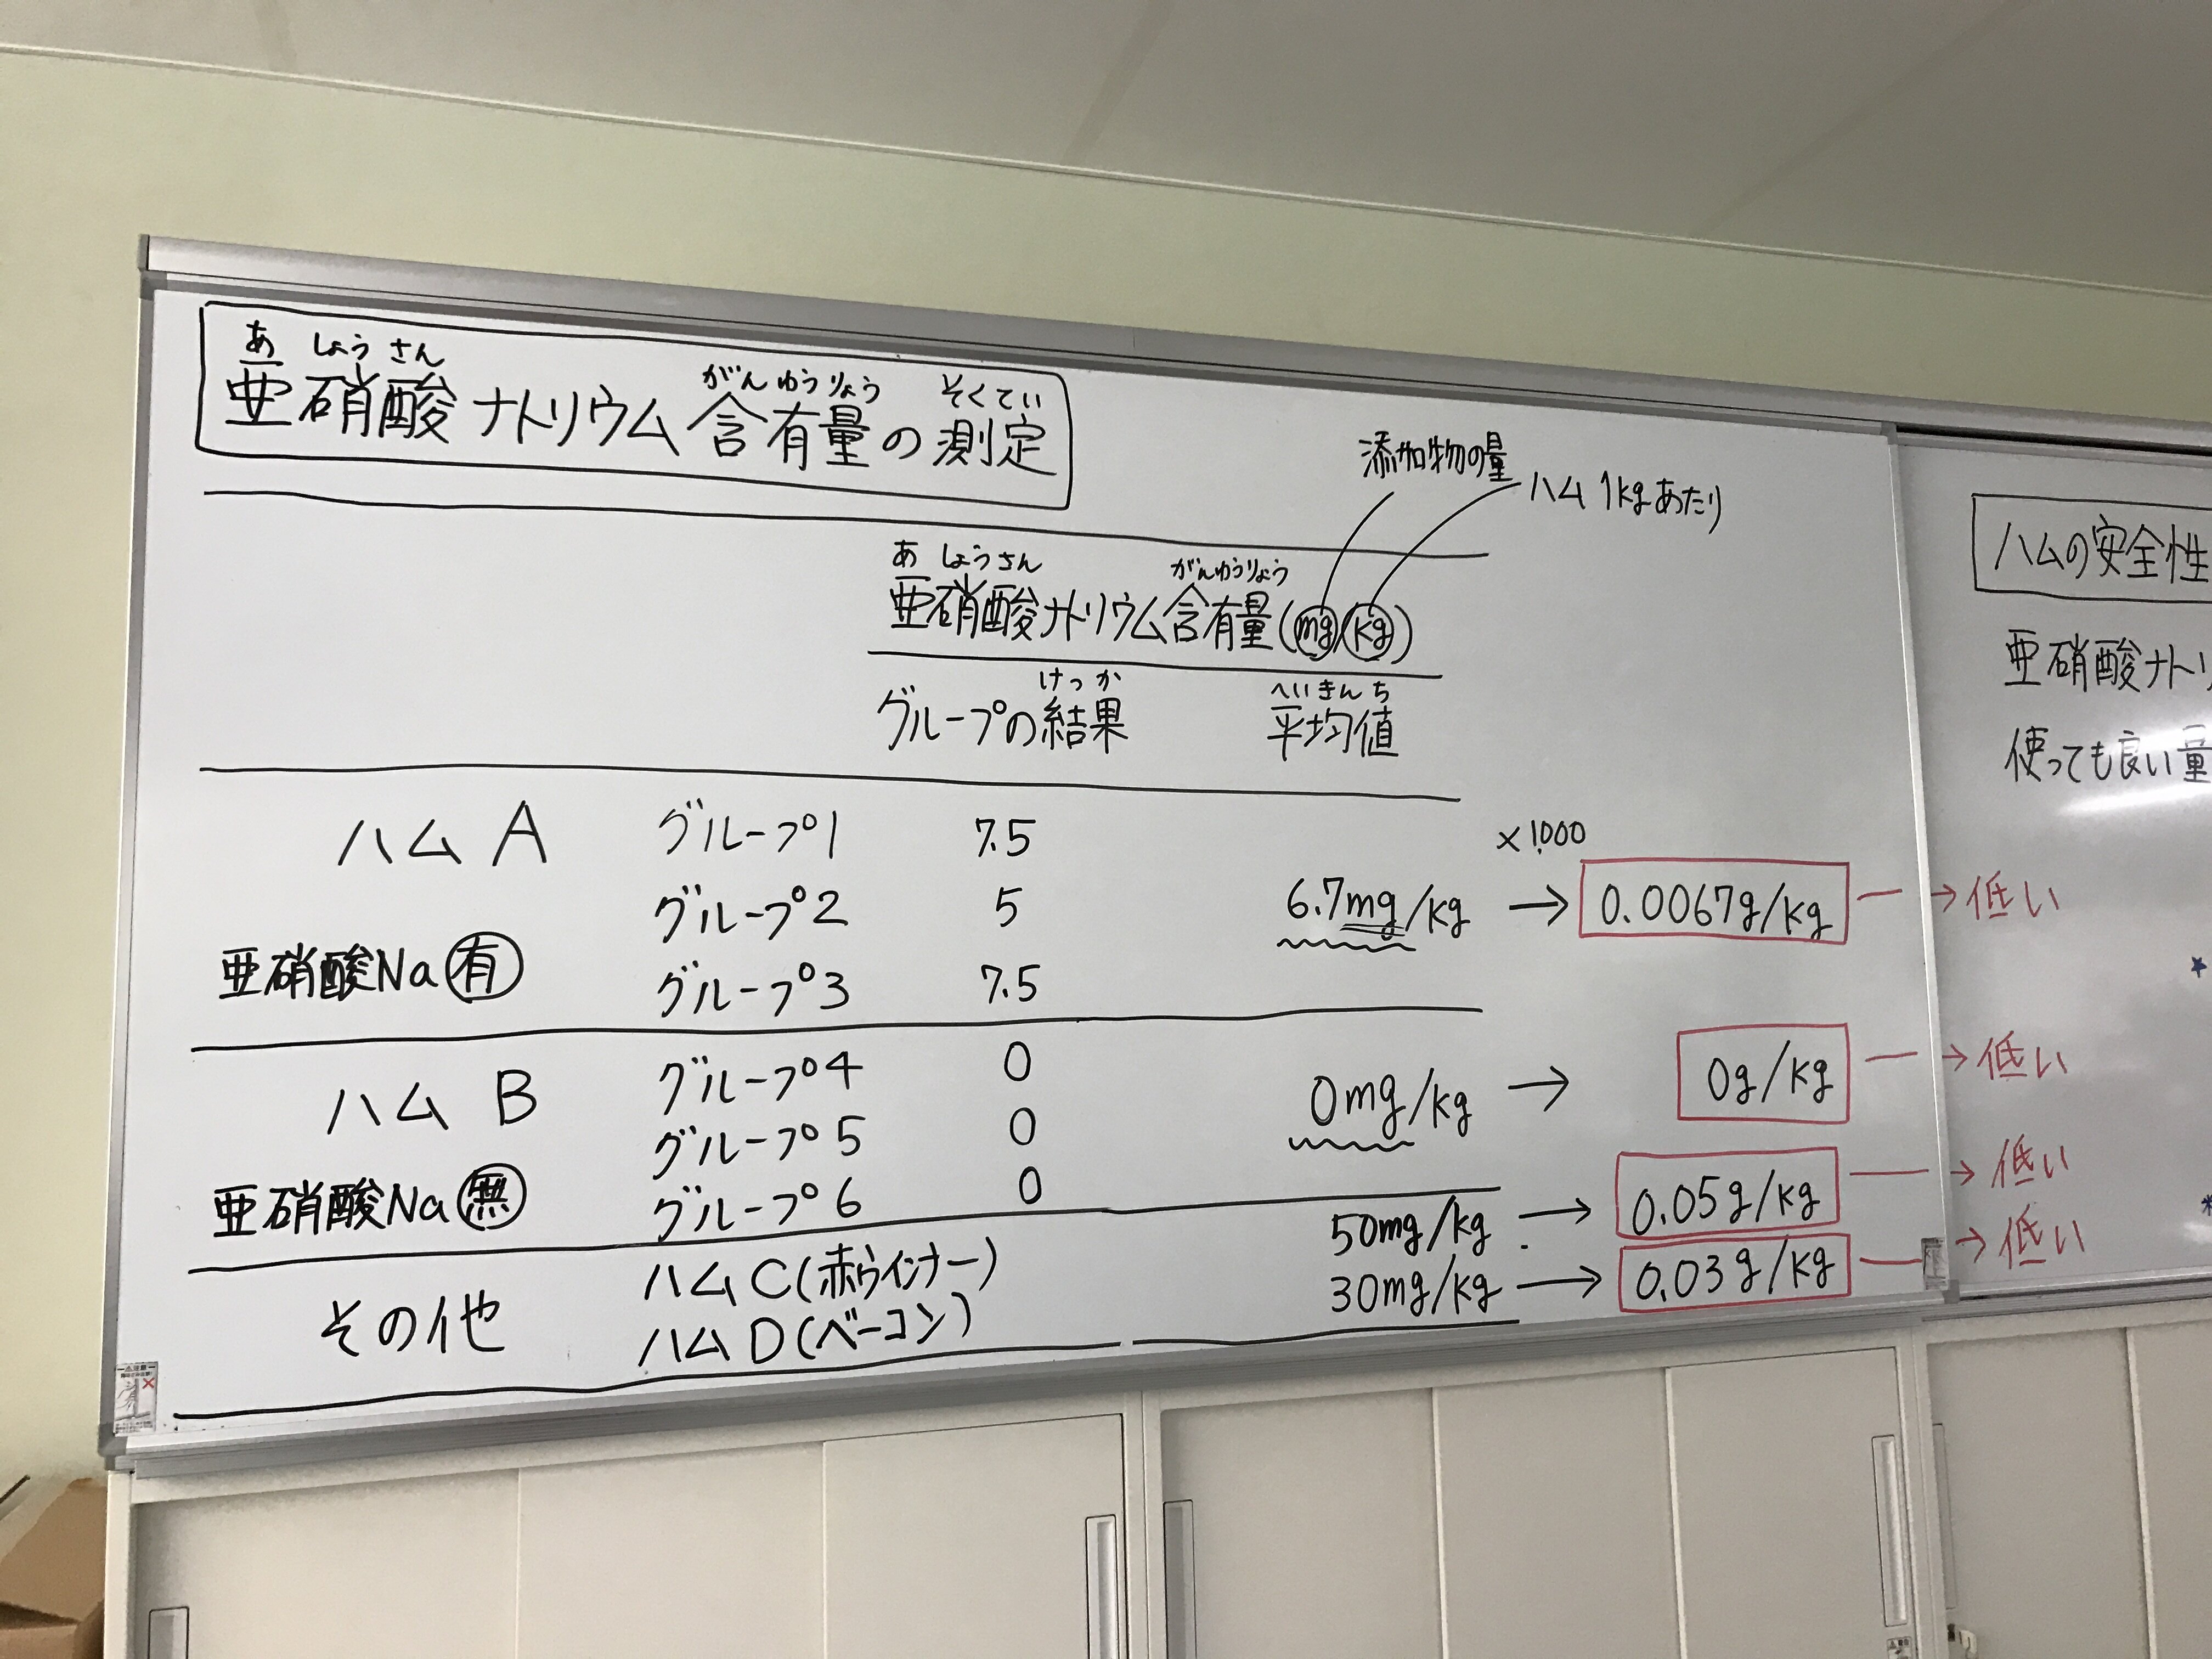 あ しょう さん がんゆうりょう そくてい
亜硝酸ナトリウム含有量の測定
添加物の量
ハム 1kgあたり
あ しょうさん がんゆうりょう
亜硝酸ナトリウム含有量(mg/kg)
けっか へいきんち
グループの結果 平均値
ハム A グループ1 7.5
×1000
グループ2 5 6.7mg/kg → 0.0067g/kg → 低い
亜硝酸Na 有 グループ3 7.5
ハム B グループ4 0
0mg/kg → 0g/kg → 低い
グループ5 0
亜硝酸Na 無 グループ6 0
その他 ハムC(赤ウインナー) 50mg/kg → 0.05g/kg → 低い
ハムD(ベーコン) 30mg/kg → 0.03g/kg → 低い
ハムの安全性
亜硝酸ナトリ
使っても良い量